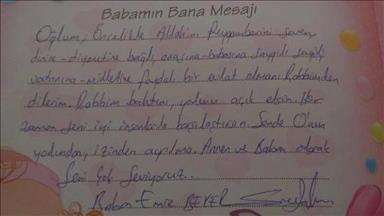 Babamın Bana Mesajı
Oğlum, Öncelikle Allahın Peygamberini seven
dinine-diyanetine bağlı, anasına-babasına saygılı sevgili
vatanına-milletine faydalı bir evlat olmanı Rabbimden
dilerim. Rabbim bahtını, yolunu açık etsin. Her
zaman seni iyi insanlarla karşılaştırsın. Sende O'nun
yolundan, izinden ayrılma. Annen ve Baban olarak
Seni Çok Seviyoruz...
Baban Emir